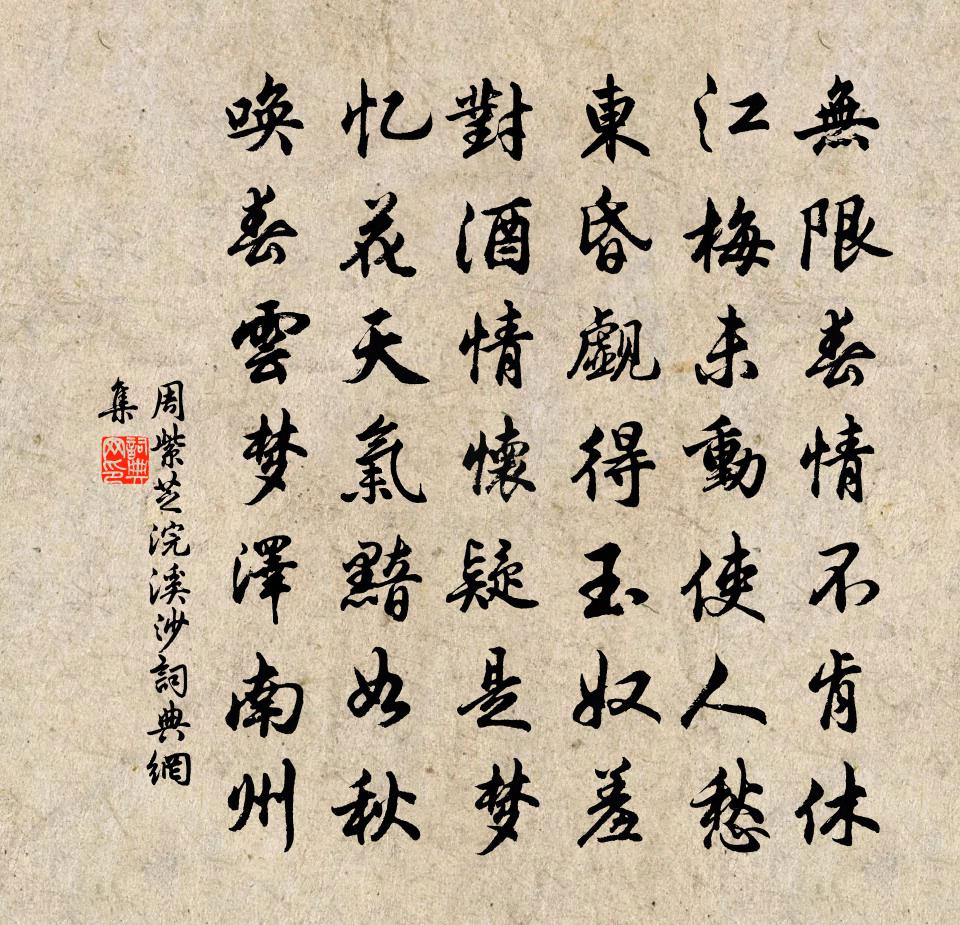 無限春情不肯休
江梅未動使人愁
東昏覷得玉奴羞
對酒情懷疑是梦
忆花天氣黯如秋
唤春雲梦澤南州
周紫芝浣溪沙詞典網
集
詞典
网印